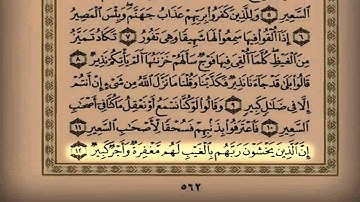 ٱلسَّعِيرِ ۝٥ وَلِلَّذِينَ كَفَرُوا۟ بِرَبِّهِمْ عَذَابُ جَهَنَّمَ ۖ وَبِئْسَ ٱلْمَصِيرُ
۝٦ إِذَآ أُلْقُوا۟ فِيهَا سَمِعُوا۟ لَهَا شَهِيقًا وَهِىَ تَفُورُ ۝٧ تَكَادُ تَمَيَّزُ
مِنَ ٱلْغَيْظِ ۖ كُلَّمَآ أُلْقِىَ فِيهَا فَوْجٌ سَأَلَهُمْ خَزَنَتُهَآ أَلَمْ يَأْتِكُمْ نَذِيرٌ ۝٨
قَالُوا۟ بَلَىٰ قَدْ جَآءَنَا نَذِيرٌ فَكَذَّبْنَا وَقُلْنَا مَا نَزَّلَ ٱللَّهُ مِن شَىْءٍ إِنْ أَنتُمْ
إِلَّا فِى ضَلَٰلٍ كَبِيرٍ ۝٩ وَقَالُوا۟ لَوْ كُنَّا نَسْمَعُ أَوْ نَعْقِلُ مَا كُنَّا فِىٓ أَصْحَٰبِ
ٱلسَّعِيرِ ۝١٠ فَٱعْتَرَفُوا۟ بِذَنۢبِهِمْ فَسُحْقًا لِّأَصْحَٰبِ ٱلسَّعِيرِ ۝١١
إِنَّ ٱلَّذِينَ يَخْشَوْنَ رَبَّهُم بِٱلْغَيْبِ لَهُم مَّغْفِرَةٌ وَأَجْرٌ كَبِيرٌ ۝١٢
٥٦٢